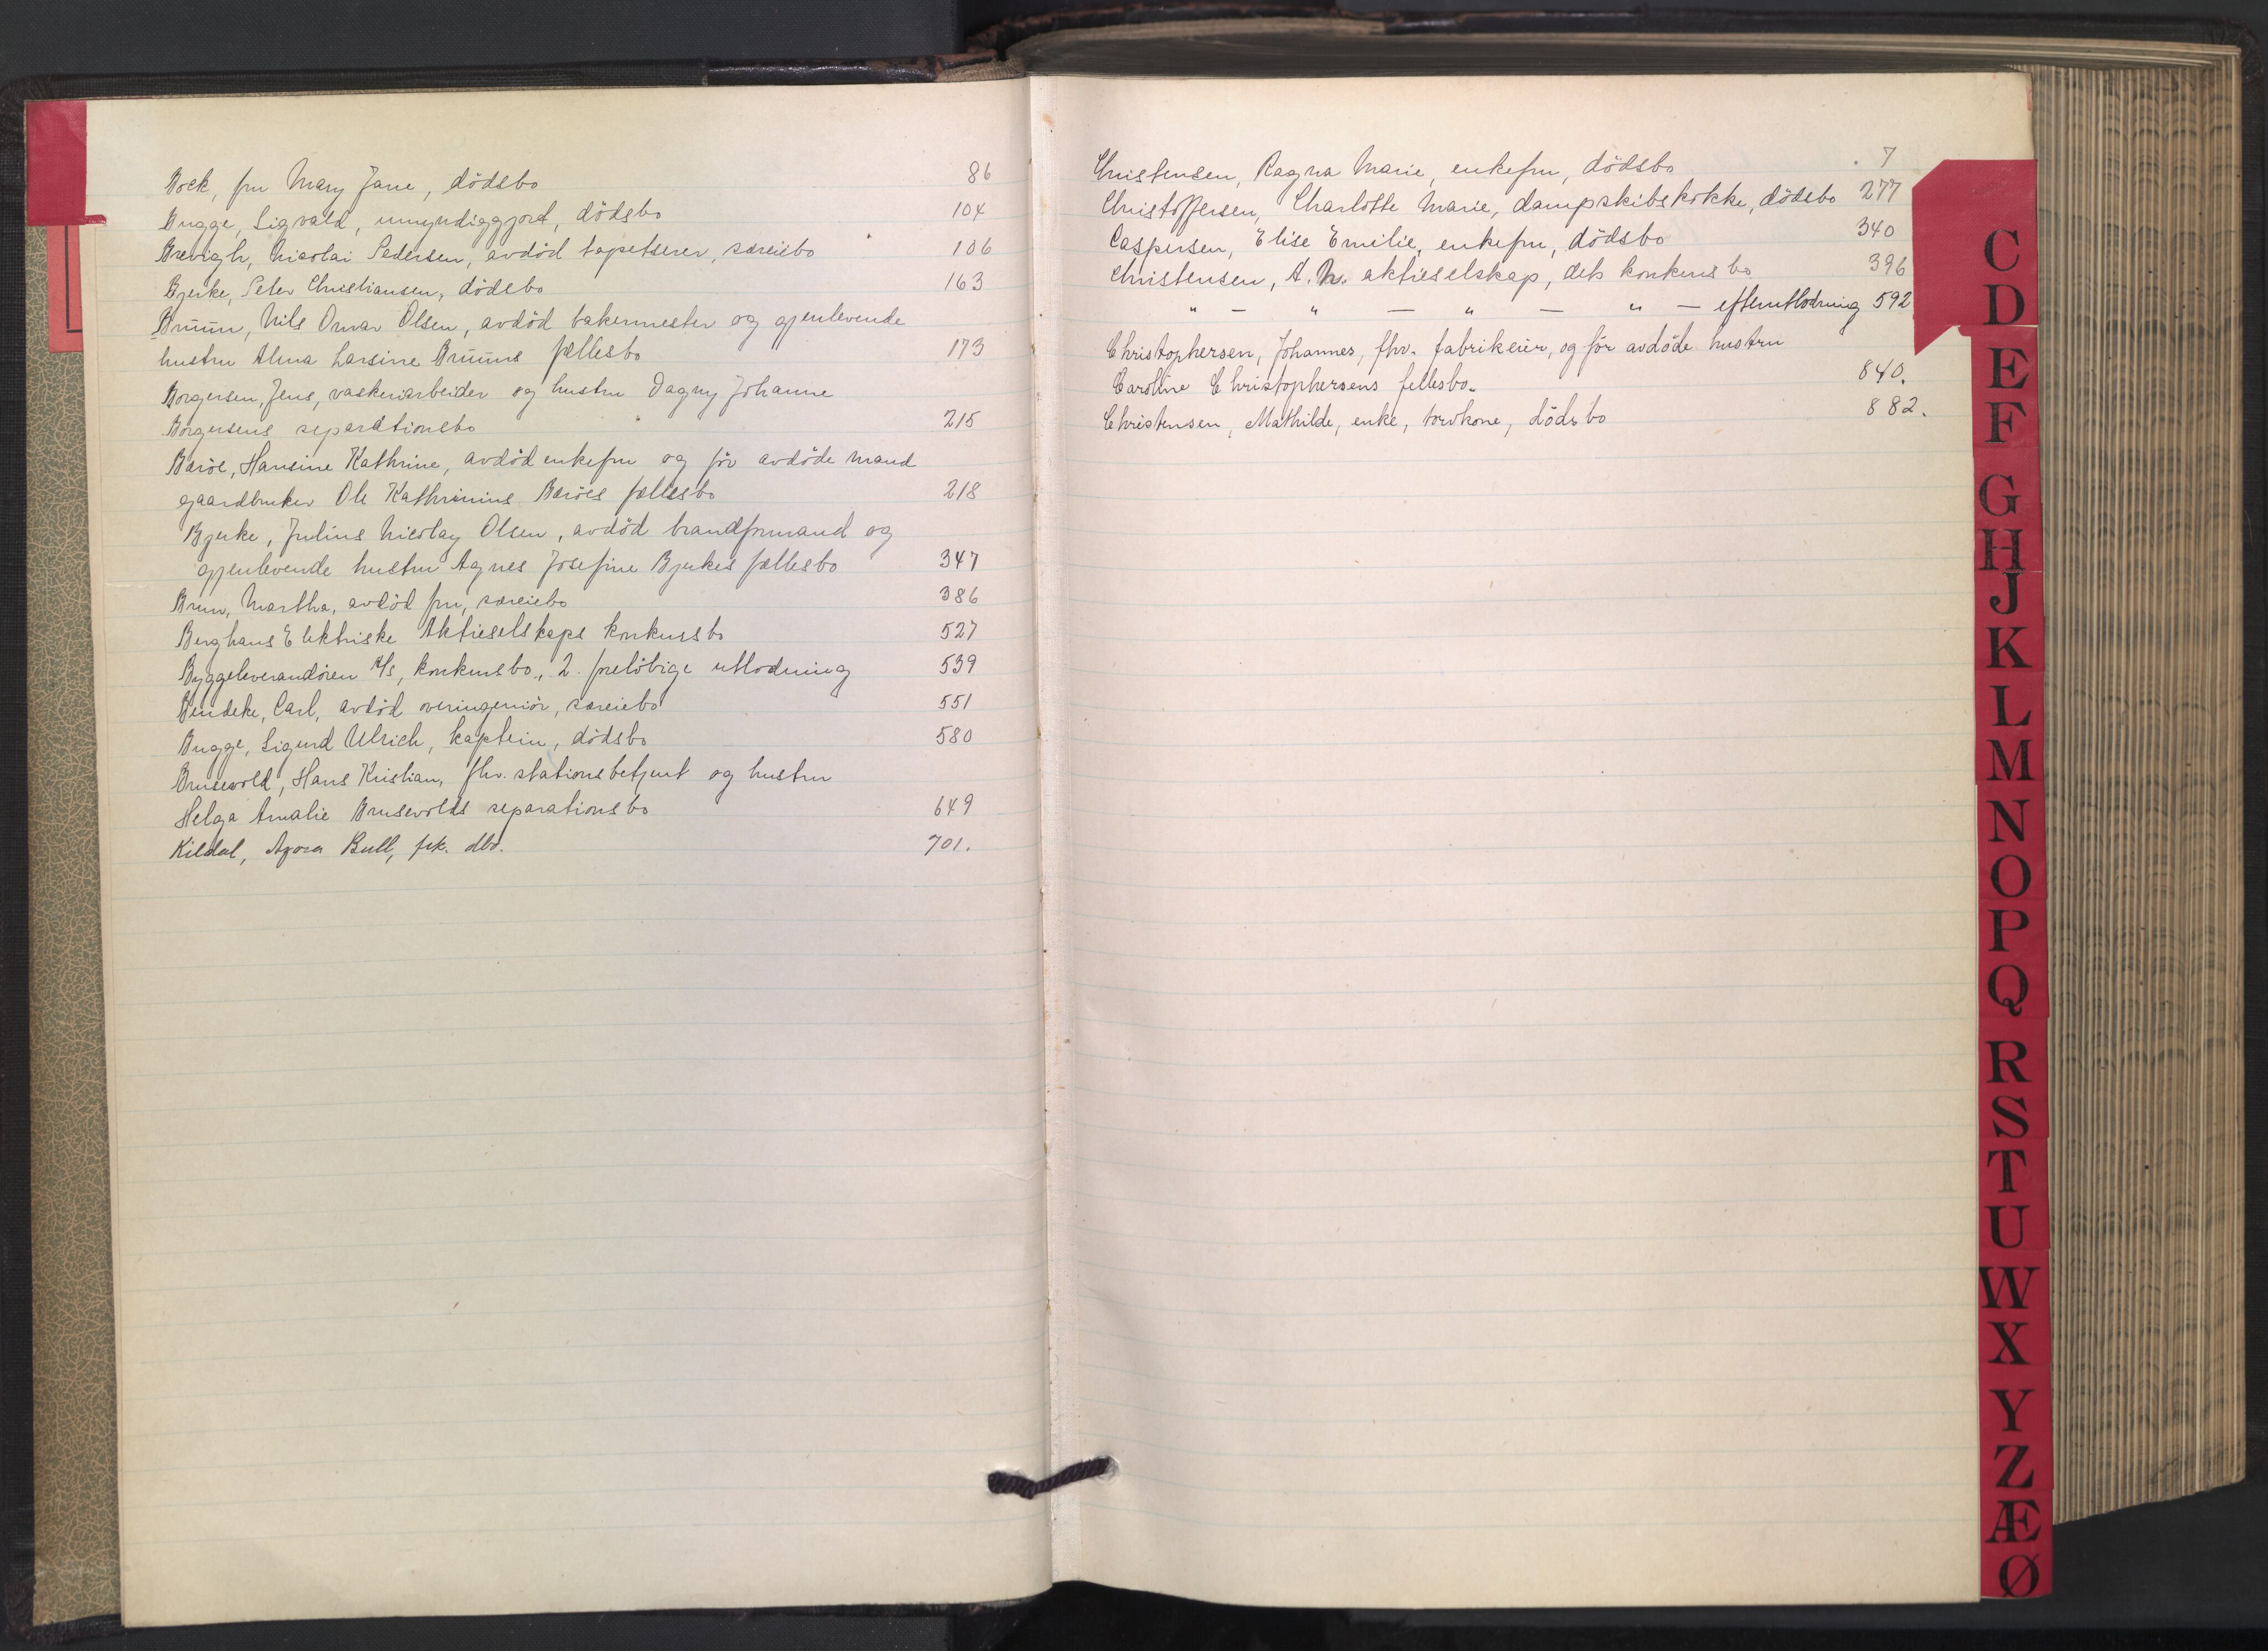 Bock, fru Mary Jane, dödsbo 86
Bugge, Sigvald, umyndiggjort, dödsbo 104
Brevigh, Nicolai Pedersen, avdöd tapetserer, særeiebo 106
Bjerke, Peter Christiansen, dödsbo 163
Brüün, Nils Omar Olsen, avdöd bakermester og gjenlevende
hustru Alma Larsine Brüüns fællesbo 173
Borgersen, Jens, vaskeriarbeider og hustru Dagny Johanne
Borgersens separationsbo 215
Baröe, Hansine Kathrine, avdöd enkefru og för avdöde mand
gaardbruker Ole Kathrinius Baröes fællesbo 218
Bjerke, Julius Nicolay Olsen, avdöd brandformand og
gjenlevende hustru Agnes Josefine Bjerkes fællesbo 347
Brun, Martha, avdöd fru, særeiebo 386
Berghaus Elektriske Aktieselskaps konkursbo 527
Byggeleverandören A/s, konkursbo, 2. forelöbige utlodning 539
Bendeke, Carl, avdöd overingeniör, særeiebo 551
Bugge, Sigurd Ulrich, kaptein, dödsbo 580
Brusevold, Hans Kristian, fhv. stationsbetjent og hustru
Helga Amalie Brusevolds separationsbo 649
Kildal, Agora Bull, frk. dbo. 701.
Christensen, Ragna Marie, enkefru, dödsbo 7
Christoffersen, Charlotte Marie, dampskibskokke, dödsbo 277
Caspersen, Elise Emilie, enkefru, dödsbo 340
Christensen, A. N. aktieselskap, dets konkursbo 396
" — " — " — " — efterutlodning 592
Christophersen, Johannes, fhv. fabrikeier, og för avdöde hustru
Caroline Christophersens fellesbo. 840.
Christensen, Mathilde, enke, torvkone, dödsbo 882.
C
D
E
F
G
H
J
K
L
M
N
O
P
Q
R
S
T
U
W
X
Y
Z
Æ
Ø